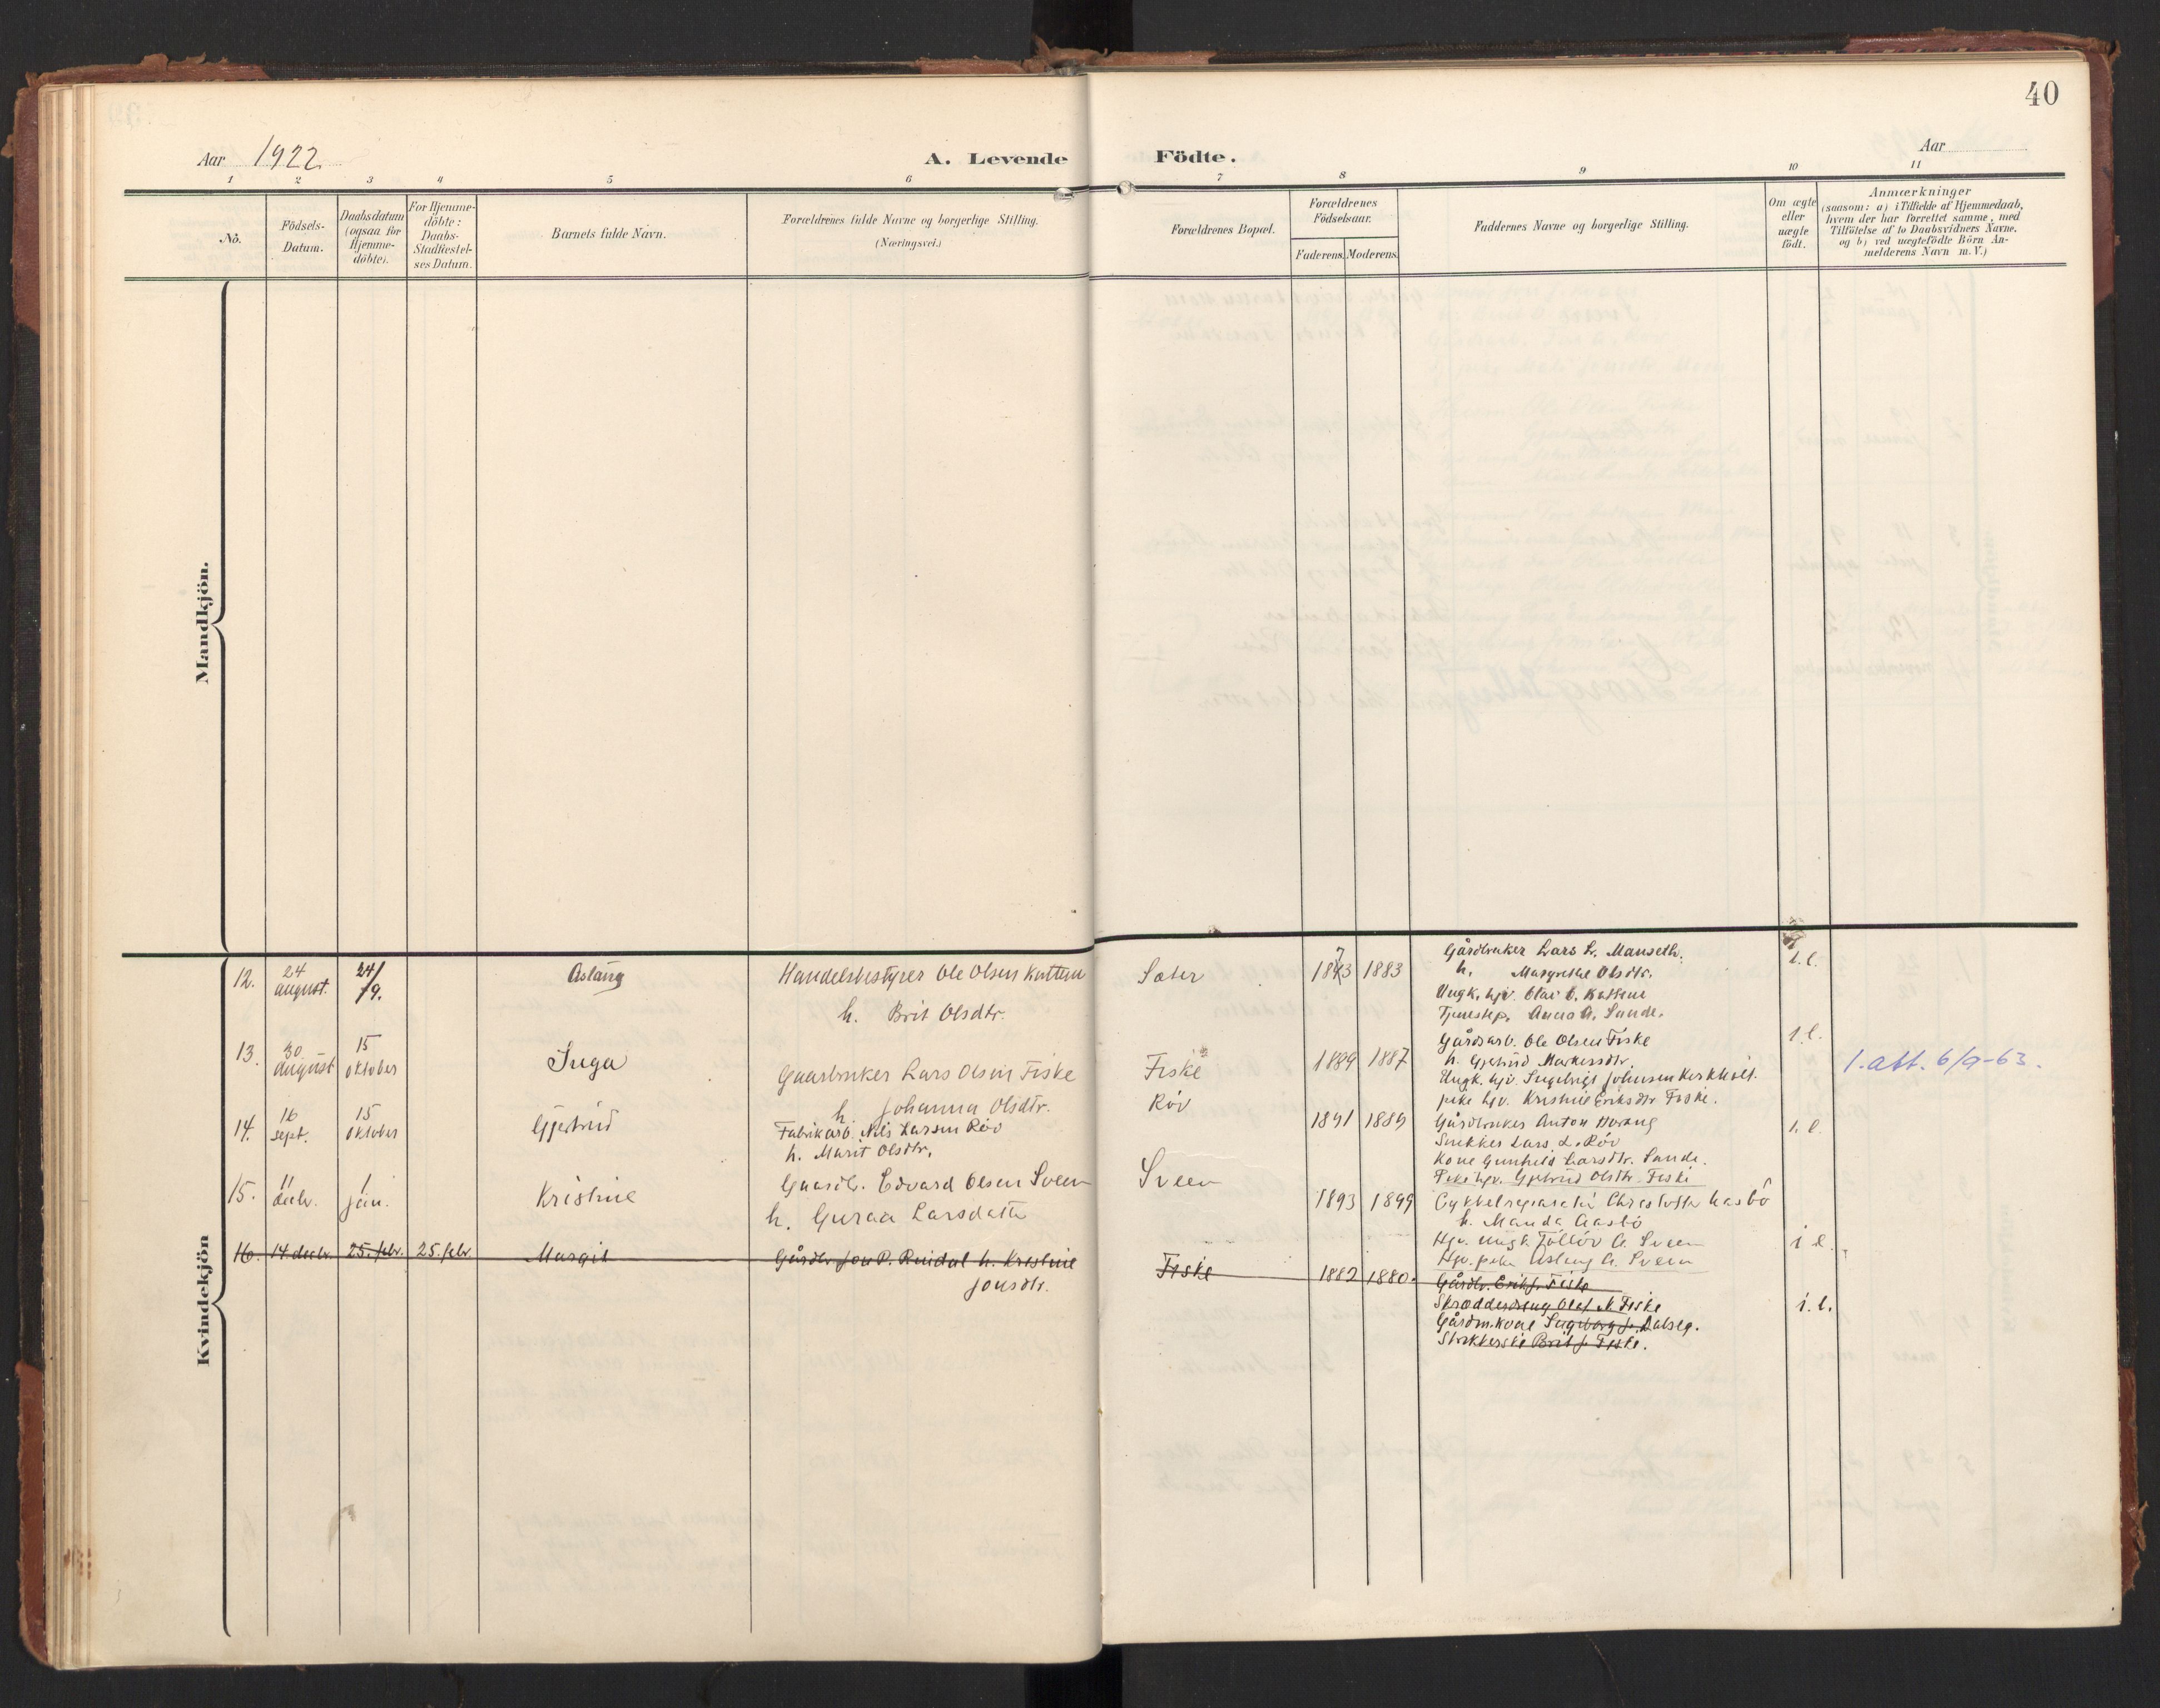 40
Aar 1922
A. Levende Födte.
Aar
1 2 3 4 5 6 7 8 9 10 11
No.
Födsels-
Datum.
Daabsdatum
(ogsaa for
Hjemme-
döbte).
For Hjemme-
döbte:
Daabs-
Stadfæstel-
ses Datum.
Barnets fulde Navn.
Forældrenes fulde Navne og borgerlige Stilling.
(Næringsvei.)
Forældrenes Bopæl.
Forældrenes
Födselsaar.
Faderens. Moderens.
Faddernes Navne og borgerlige Stilling.
Om ægte
eller
uægte
födt.
Anmærkninger
(saasom: a) i Tilfælde af Hjemmedaab,
hvem der har forrettet samme, med
Tilföielse af to Daabsvidners Navne,
og b) ved uægtefödte Börn An-
melderens Navn m. V.)
Mandkjön.
Kvindekjön
12. 24 august. 24/9. Aslaug
Handelsbestyrer Ole Olsen
h. Brit Olsdtr.
Sæter 1873 1883
Gårdbruker Lars L. Manseth.
h. Margrethe Olsdtr.
Ungk. hjv. Olai O.
Tjenestep. Anna A. Sande.
i. l.
13. 30 august 15 oktober Inga
Gaardbruker Lars Olsen Fiske
h. Johanna Olsdtr.
Fiske 1889 1887
Gårdsarb. Ole Olsen Fiske
h. Gjertrud
Ungk. hjv. Ingebrigt Johnsen
pike hjv. Kristine Eriksdtr Fiske.
i. l.
1. att. 6/9-63.
14. 16 sept. 15 oktober Gjertrud
Fabrikarb. Nils Larsen Röv
h. Marit Olsdtr.
Röv 1891 1889
Gårdbruker Anton
Snekker Lars L. Röv
Kone Gunhild Larsdtr. Sande.
Pike hjv. Gjertrud Olsdtr. Fiske
i. l.
15. 11 decbr. 1 jan. Kristine
Gaardb. Edvard Olsen Sveen
h. Guraa Larsdatter
Sveen 1893 1899
Cykkelreparatör Christoffer Aasbö
h. Manda Aasbö
Hjv. ungk. Tollöv O. Sveen
Hjv. pike Aslaug O. Sveen
i l.
16. 14. decbr. 25. febr. 25. febr. Margit
Gårdbr. Jon P. h. Kristine
Jonsdtr.
Fiske 1882 1880.
Gårdb. Erik J. Fiske
Skrædderdreng Olaf N. Fiske
Gårdm.kone Ingeborg J. Dalseg.
Strikkerske Brit J. Fiske.
i. l.